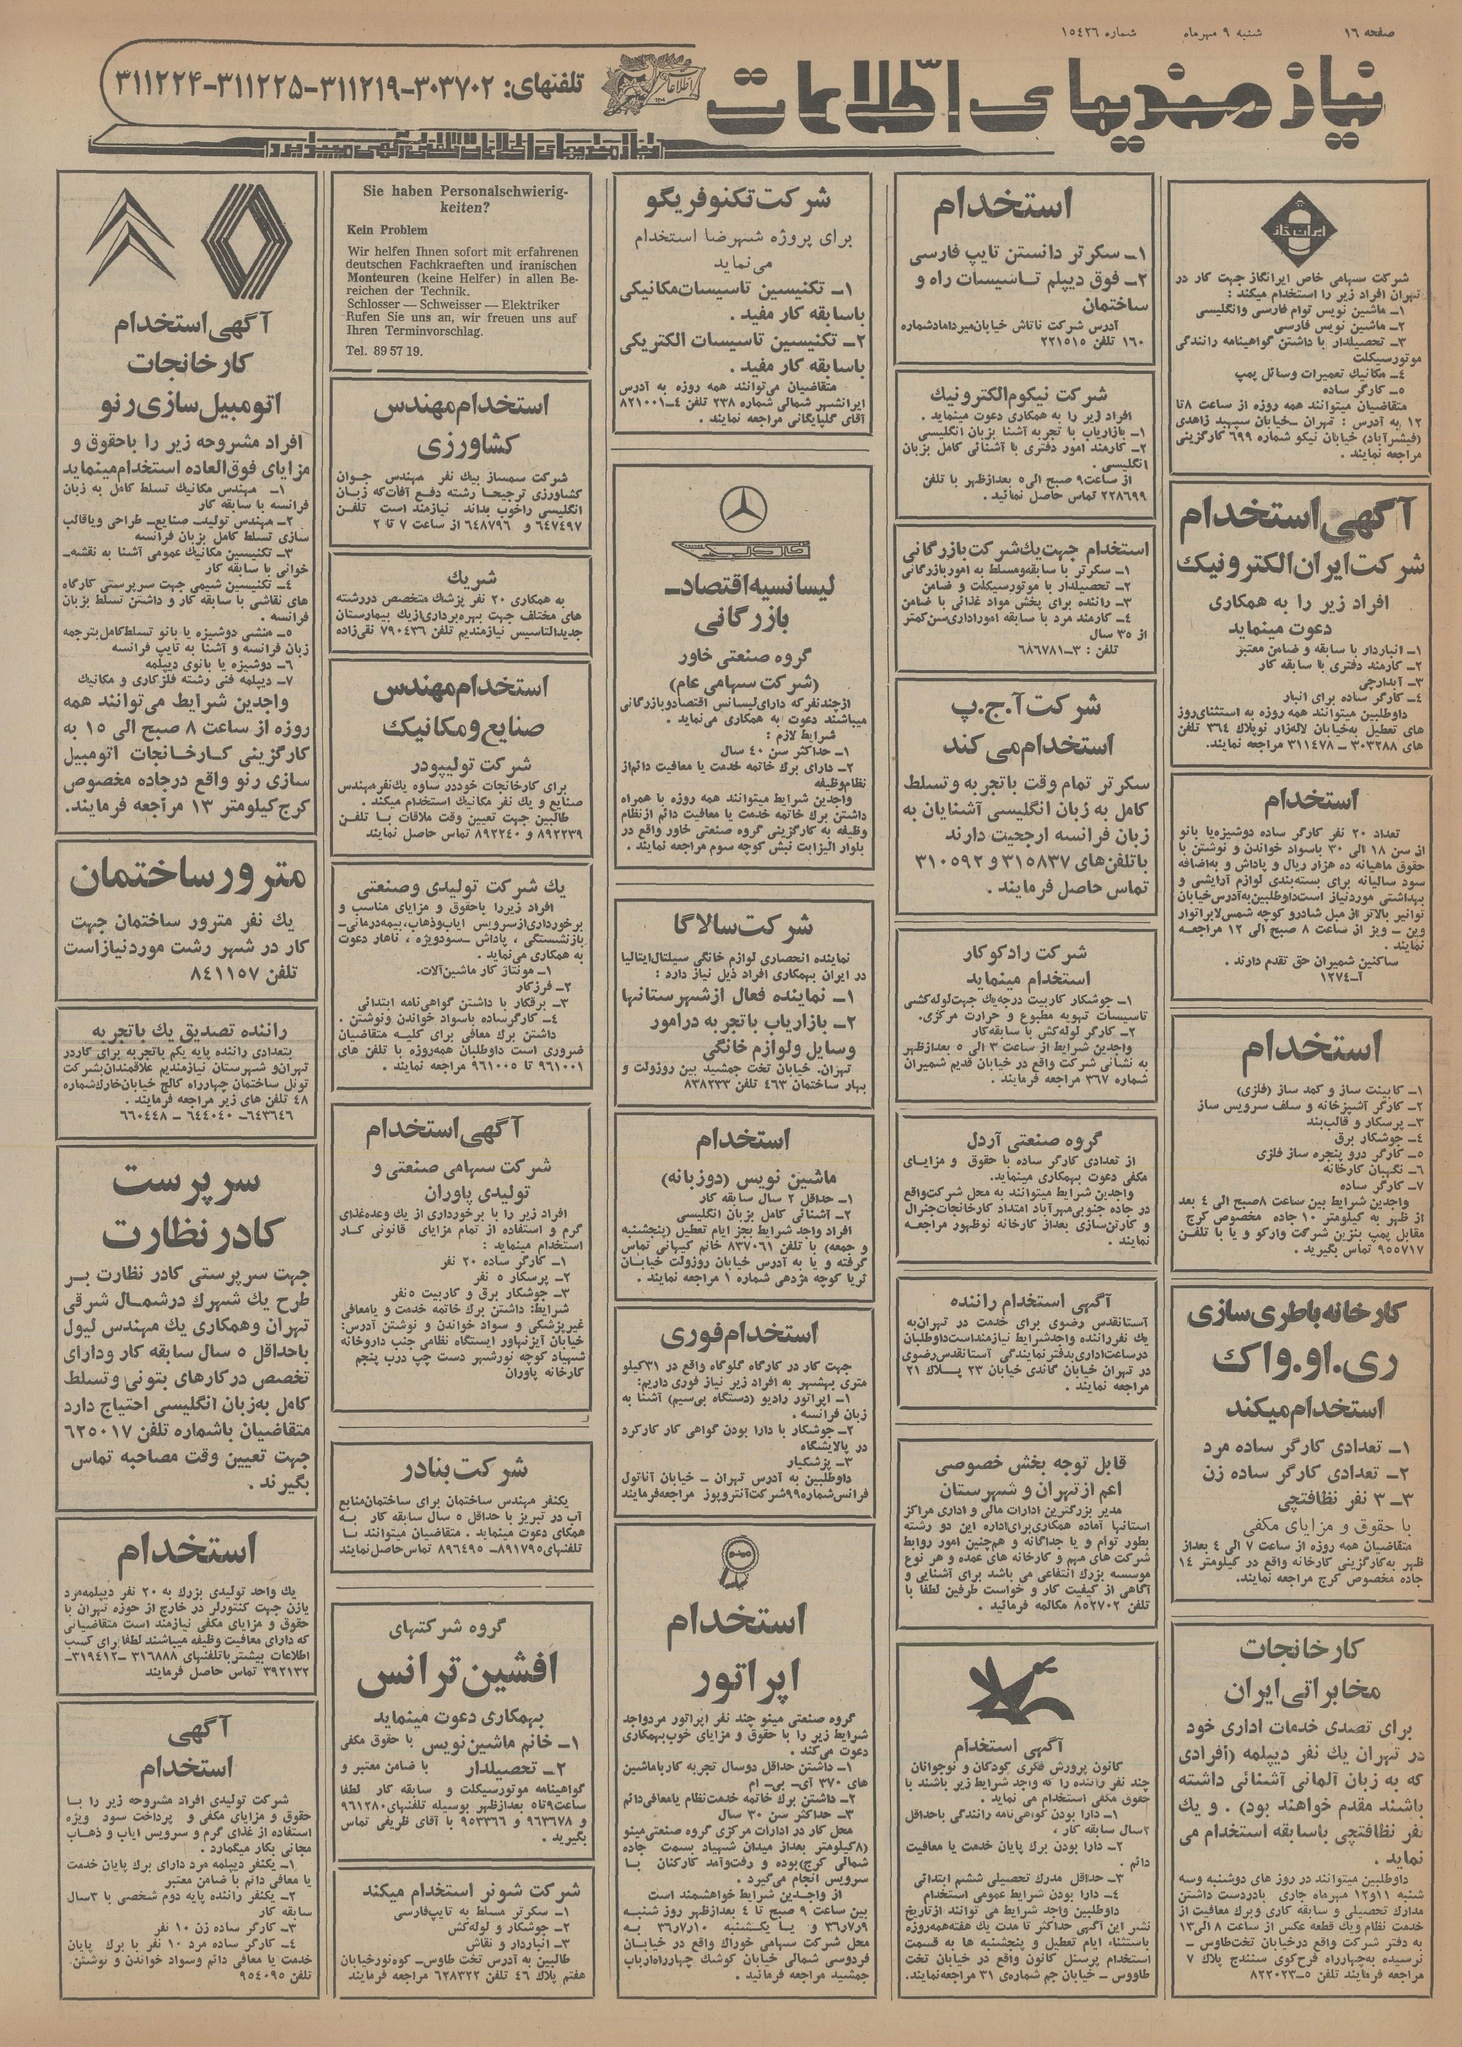 صفحه ۱۶
شنبه ۹ مهرماه
شماره ۱۵۴۲۶
نیازمندیهای اطلاعات
تلفنهای: ۳۰۳۷۰۲-۳۱۱۲۱۹-۳۱۱۲۲۵-۳۱۱۲۲۴
نیازمندیهای اطلاعات تلفنی آگهی میپذیرد
ایران گاز
شرکت سهامی خاص ایرانگاز جهت کار در
تهران افراد زیر را استخدام میکند :
۱ــ ماشین نویس توام فارسی وانگلیسی
۲ــ ماشین نویس فارسی
۳ــ تحصیلدار با داشتن گواهینامه رانندگی
موتورسیکلت
۴ــ مکانیک تعمیرات وسائل پمپ
۵ــ کارگر ساده
متقاضیان میتوانند همه روزه از ساعت ۸تا
۱۲ به آدرس : تهران ــخیابان سپهبد زاهدی
(فیشرآباد) خیابان نیکو شماره ۶۹۹ کارگزینی
مراجعه نمایند .
آگهی استخدام
شرکت ایران الکترونیک
افراد زیر را به همکاری
دعوت مینماید
۱ــ انباردار با سابقه و ضامن معتبر
۲ــ کارمند دفتری با سابقه کار
۳ــ آبدارچی
۴ــ کارگر ساده برای انبار
داوطلبین میتوانند همه روزه به استثنای‌روز
های تعطیل به‌خیابان لاله‌زار نوپلاک ۳۶۴ تلفن
های ۳۰۳۲۸۸ ــ ۳۱۱۴۷۸ مراجعه نمایند.
استخدام
تعداد ۲۰ نفر کارگر ساده دوشیزه‌یا بانو
از سن ۱۸ الی ۳۰ باسواد خواندن و نوشتن با
حقوق ماهیانه ده هزار ریال و پاداش و به‌اضافه
سود سالیانه برای بسته‌بندی لوازم آرایشی و
بهداشتی موردنیاز است‌داوطلبین‌به‌آدرس‌خیابان
توانیر بالاتر از میل شادرو کوچه شمس‌لابراتوار
وین ــ ویز از ساعت ۸ صبح الی ۱۲ مراجعـه
نمایند .
ساکنین شمیران حق تقدم دارند .
آــ۱۲۷۴
استخدام
۱ــ کابینت ساز و کمد ساز (فلزی)
۲ــ کارگر آشپزخانه و سلف سرویس ساز
۳ــ پرسکار و قالب‌بند
۴ــ جوشکار برق
۵ــ کارگر درو پنجره ساز فلزی
۶ــ نگهبان کارخانه
۷ــ کارگر ساده
واجدین شرایط بین ساعت ۸صبح الی ۴ بعد
از ظهر به کیلومتر ۱۰ جاده مخصوص کرج
مقابل پمپ بنزین شرکت وارکو و یا با تلفـن
۹۵۵۷۱۷ تماس بگیرید .
کارخانه باطری سازی
ری.او.واک
استخدام میکند
۱ــ تعدادی کارگر ساده مرد
۲ــ تعدادی کارگر ساده زن
۳ــ ۳ نفر نظافتچی
با حقوق و مزایای مکفی
متقاضیان همه روزه از ساعت ۷ الی ۴ بعداز
ظهر به‌کارگزینی کارخانه واقع در کیلومتر ۱۴
جاده مخصوص کرج مراجعه نمایند.
کارخانجات
مخابراتی ایران
برای تصدی خدمات اداری خود
در تهران یک نفر دیپلمه (افرادی
که به زبان آلمانی آشنائی داشته
باشند مقدم خواهند بود) . و یک
نفر نظافتچی باسابقه استخدام می
نماید .
داوطلبین میتوانند در روز های دوشنبه وسه
شنبه ۱۱و۱۲ مهرماه جاری بادردست داشتن
مدارک تحصیلی و سابقه کاری وبرک معافیت از
خدمت نظام ویک قطعه عکس از ساعت ۸ الی۱۳
به دفتر شرکت واقع درخیابان تخت‌طاوس ــ
نرسیده به‌چهارراه فرح‌کوی سنندج پلاک ۷
مراجعه فرمایند تلفن ۵ــ۸۲۲۰۲۳
استخدام
۱ــ سکرتر دانستن تایپ فارسی
۲ــ فوق دیپلم تـاسیسات راه و
ساختمان
آدرس شرکت ناتاش خیابان‌میردامادشماره
۱۶۰ تلفن ۲۲۱۵۱۵
شرکت نیکوم‌الکترونیک
افراد زیر را به همکاری دعوت مینماید .
۱ــ بازاریاب با تجربه آشنا بزبان انگلیسی
۲ــ کارمند امور دفتری با آشنائی کامل بزبان
انگلیسی .
از ساعت۹ صبح الی۵ بعدازظهر با تلفن
۲۲۸۶۹۹ تماس حاصل نمائید .
استخدام جهت‌یک‌شرکت‌بازرگانی
۱ــ سکرتر با سابقه‌ومسلط به امور‌بازرگانی
۲ــ تحصیلدار با موتورسیکلت و ضامن
۳ــ راننده برای پخش مواد غذائی با ضامن
۴ــ کارمند مرد با سابقه اموراداری‌سن‌کمتر
از ۳۵ سال
تلفن : ۳ــ۶۸۶۷۸۱
شرکت آ.ج.پ
استخدام می کند
سکرتر تمام وقت باتجربه و تسلط
کامل به زبان انگلیسی آشنایان به
زبان فرانسه ارجحیت دارند
باتلفن‌های ۳۱۵۸۳۷ و ۳۱۰۵۹۲
تماس حاصل فرمایند .
شرکت رادکو کار
استخدام مینماید
۱ــ جوشکار کاربیت درجه‌یک جهت‌لوله‌کشی
تاسیسات تهویه مطبوع و حرارت مرکزی.
۲ــ کارگر لوله‌کش با سابقه‌کار
واجدین شرایط از ساعت ۳ الی ۵ بعدازظهر
به نشانی شرکت واقع در خیابان قدیم شمیران
شماره ۳۶۷ مراجعه فرمایند .
گروه صنعتی آردل
از تعدادی کارگر ساده با حقوق و مزایـای
مکفی دعوت بهمکاری مینماید.
واجدین شرایط میتوانند به محل شرکت‌واقع
در جاده جنوبی‌مهرآباد امتداد کارخانجات‌جنرال
و کارتن‌سازی بعداز کارخانه نوظهور مراجعـه
نمایند .
آگهی استخدام راننده
آستانقدس رضوی برای خدمت در تهران‌به
یک نفرراننده واجدشرایط نیازمنداست‌داوطلبان
درساعات‌اداری‌بدفترنمایندگی آستانقدس‌رضوی
در تهران خیابان گاندی خیابان ۲۳ پـلاک ۲۱
مراجعه نمایند .
قابل توجه بخش خصوصی
اعم از تهران و شهرستان
مدیر بزرگترین ادارات مالی و اداری مراکز
استانها آماده همکاری‌برای‌اداره این دو رشته
بطور توام و یا جداگانه و هم‌چنین امور روابط
شرکت های مهم و کارخانه های عمده و هر نوع
موسسه بزرک انتفاعی می باشد برای آشنایی و
آگاهی از کیفیت کار و خواست طرفین لطفا با
تلفن ۸۵۲۷۰۲ مکالمه فرمائید .
آگهی استخدام
کانون پرورش فکری کودکان و نوجوانان
چند نفر راننده را که واجد شرایط زیر باشند با
حقوق مکفی استخدام می نماید .
۱ــ دارا بودن گواهی‌نامه رانندگی باحداقل
۲سال سابقه کار .
۲ــ دارا بودن برک پایان خدمت یا معافیت
دائم .
۳ــ حداقل مدرک تحصیلی ششم ابتدائی
۴ــ دارا بودن شرایط عمومی استخدام
داوطلبین واجد شرایط می توانند ازتاریخ
نشر این آگهی حداکثر تا مدت یک هفته‌همه‌روزه
باستثناء ایام تعطیل و پنجشنبه ها به قسمت
استخدام پرسنل کانون واقع در خیابان تخت
طاووس ــ خیابان جم شماره‌ی ۳۱ مراجعه‌نمایند.
شرکت تکنوفریگو
برای پروژه شهرضا استخدام
می‌نماید
۱ــ تکنیسین تاسیسات‌مکانیکی
باسابقه کار مفید .
۲ــ تکنیسین تاسیسات الکتریکی
باسابقه کار مفید .
متقاضیان می‌توانند همه روزه به آدرس
ایرانشهر شمالی شماره ۲۳۸ تلفن ۴ــ۸۲۱۰۰۱
آقای گلپایگانی مراجعه نمایند .
خاور
لیسانسیه اقتصاد ــ
بازرگانی
گروه صنعتی خاور
(شرکت سهامی عام)
ازچندنفرکه دارای‌لیسانس اقتصادوبازرگانی
میباشند دعوت به همکاری می‌نماید .
شرایط لازم :
۱ــ حداکثر سن ۴۰ سال
۲ــ دارای برک خاتمه خدمت یا معافیت دائم‌از
نظام‌وظیفه
واجدین شرایط میتوانند همه روزه با همراه
داشتن برک خاتمه خدمت یا معافیت دائم ازنظام
وظیفه به کارگزینی گروه صنعتی خاور واقع در
بلوار الیزابت نبش کوچه سوم مراجعه نمایند .
شرکت سالاگا
نماینده انحصاری لوازم خانگی سیلتال‌ایتالیا
در ایران بهمکاری افراد ذیل نیاز دارد :
۱ــ نماینده فعال ازشهرستانها
۲ــ بازاریاب باتجربه درامور
وسایل ولوازم خانگی
تهران. خیابان تخت جمشید بین روزولت و
بهار ساختمان ۴۶۳ تلفن ۸۳۸۲۳۳
استخدام
ماشین نویس (دوزبانه)
۱ــ حداقل ۲ سال سابقه کار
۲ــ آشنائی کامل بزبان انگلیسی
افراد واجد شرایط بجز ایام تعطیل (پنجشنبه
و جمعه) با تلفن ۸۳۷۰۶۱ خانم کیهانی تماس
گرفته و یا به آدرس خیابان روزولت خیابـان
ثریا کوچه مژدهی شماره ۱ مراجعه نمایند .
استخدام فوری
جهت کار در کارگاه گلوگاه واقع در ۳۱کیلو
متری بهشهر به افراد زیر نیاز فوری داریم:
۱ــ اپراتور رادیو (دستگاه بی‌سیم) آشنا به
زبان فرانسه .
۲ــ جوشکار با دارا بودن گواهی کار کارکرد
در پالایشگاه
۳ــ پزشکیار
داوطلبین به آدرس تهران ــ خیابان آناتول
فرانس‌شماره۹۹شرکت‌آنتروپوز مراجعه‌فرمایند
مینو
استخدام
اپراتور
گروه صنعتی مینو چند نفر اپراتور مردواجد
شرایط زیر را با حقوق و مزایای خوب‌بهمکاری
دعوت می‌کند .
۱ــ داشتن حداقل دوسال تجربه کار‌باماشین
های ۳۷۰ آی‌ـ بی‌ـ ام
۲ــ داشتن برک خاتمه خدمت‌نظام یامعافی‌دائم
۳ــ حداکثر سن ۳۰ سال
محل کار در ادارات مرکزی گروه صنعتی‌مینو
(۸کیلومتر بعداز میدان شهیاد بسمت جاده
شمالی کرج)بوده و رفت‌وآمد کارکنان بـا
سرویس انجام می‌گیرد .
از واجـدین شرایط خواهشمند است
بین ساعت ۹ صبح تا ۴ بعدازظهر روز شنبـه
۳۶ر۷ر۹ و یـا یکـشنبه ۳۶ر۷ر۱۰ به
محل شرکت سهامی خوراک واقع در خیابـان
فردوسی شمالی خیابان کوشک چهارراه‌ارباب
جمشید مراجعه فرمائید .
Sie haben Personalschwierig-
keiten?
Kein Problem
Wir helfen Ihnen sofort mit erfahrenen
deutschen Fachkraeften und iranischen
Monteuren (keine Helfer) in allen Be-
reichen der Technik.
Schlosser — Schweisser — Elektriker
Rufen Sie uns an, wir freuen uns auf
Ihren Terminvorschlag.
Tel. 89 57 19.
استخدام مهندس
کشاورزی
شرکت سمساز بیک نفر مهندس جـوان
کشاورزی ترجیحـا رشته دفـع آفات‌که زبـان
انگلیسی راخوب بداند نیازمند است تلفـن
۶۴۷۴۹۷ و ۶۴۸۷۹۶ از ساعت ۷ تا ۲
شریک
به همکاری ۲۰ نفر پزشک متخصص دررشته
های مختلف جهت بهره‌برداری‌ازیک بیمارستان
جدیدالتاسیس نیازمندیم تلفن ۷۹۰۴۳۶ نقی‌زاده
استخدام مهندس
صنایع و مکانیک
شرکت تولیپودر
برای کارخانجات خوددر ساوه یک‌نفرمهندس
صنایع و یک نفر مکانیک استخدام میکند .
طالبین جهت تعیین وقت ملاقات بـا تلفـن
۸۹۲۲۳۹ و ۸۹۲۲۴۰ تماس حاصل نمایند
یک شرکت تولیدی وصنعتی
افراد زیررا باحقوق و مزایای مناسب و
برخورداری‌ازسرویس ایاب‌وذهاب، بیمه‌درمانی‌ـ
بازنشستگی ، پاداش ــسودویژه ، ناهار دعوت
به همکاری می‌نماید .
۱ــ مونتاژ کار ماشین‌آلات.
۲ــ فرزکار
۳ــ برقکار با داشتن گواهی‌نامه ابتدائی
۴ــ کارگرساده باسواد خواندن ونوشتن .
داشتن برک معافی برای کلیـه متقاضیان
ضروری است داوطلبان همه‌روزه با تلفن های
۹۶۱۰۰۱ تا ۹۶۱۰۰۵ مراجعه نمایند .
آگهی استخدام
شرکت سهامی صنعتی و
تولیدی پاوران
افراد زیر را با برخورداری از یک وعده‌غذای
گرم و استفاده از تمام مزایای قانونی کـار
استخدام مینماید :
۱ــ کارگر ساده ۲۰ نفر
۲ــ پرسکار ۵ نفر
۳ــ جوشکار برق و کاربیت ۵نفر
شرایط: داشتن برک خاتمه خدمت و یامعافی
غیرپزشکی و سواد خواندن و نوشتن آدرس:
خیابان آیزنهاور ایستگاه نظامی جنب داروخانه
شهیاد کوچه نورشهر دست چپ درب پنجم
کارخانه پاوران
شرکت بنادر
یکنفر مهندس ساختمان برای ساختمان‌منابع
آب در تبریز با حداقل ۵ سال سابقه کار بـه
همکای دعوت مینماید . متقاضیان میتوانند بـا
تلفنهای۸۹۱۷۹۵ـ ۸۹۶۴۹۵ تماس‌حاصل‌نمایند
گروه شرکتهای
افشین ترانس
بهمکاری دعوت مینماید
۱ــ خانم ماشین‌نویس با حقوق مکفی
۲ــ تحصیلدار با ضامن معتبر و
گواهینامه موتورسیکلت و سابقه کار لطفا
ساعت۹تا۵ بعدازظهر بوسیله تلفنهای۹۶۱۲۸۰
و ۹۶۳۶۷۸ و ۹۵۳۳۶۶ با آقای ظریفی تماس
بگیرید .
شرکت شونر استخدام میکند
۱ــ سکرتر مسلط به تایپ‌فارسی
۲ــ جوشکار و لوله‌کش
۳ــ انباردار و نقاش
طالبین به آدرس تخت طاوس‌ــ کوه‌نورخیابان
هفتم پلاک ۴۶ تلفن ۶۲۸۳۲۲ مراجعه فرمایند
آگهی استخدام
کارخانجات
اتومبیل سازی رنو
افراد مشروحه زیر را باحقوق و
مزایای فوق‌العاده استخدام‌مینماید
۱ــ مهندس مکانیک تسلط کامل به زبان
فرانسه با سابقه کار
۲ــ مهندس تولیدــ صنایع‌ـ طراحی ویاقالب
سازی تسلط کامل بزبان فرانسه
۳ــ تکنیسین مکانیک عمومی آشنا به نقشه‌ــ
خوانی با سابقه کار
۴ــ تکنیسین شیمی جهت سرپرستی کارگاه
های نقاشی با سابقه کار و داشتن تسلط بزبان
فرانسه .
۵ــ منشی دوشیزه یا بانو تسلط‌کامل‌بترجمه
زبان فرانسه و آشنا به تایپ فرانسه
۶ــ دوشیزه یا بانوی دیپلمه
۷ــ دیپلمه فنی رشته فلزکاری و مکانیک
واجدین شرایط می‌توانند همه
روزه از ساعت ۸ صبح الی ۱۵ به
کارگزینی کـارخـانجات اتومبیل
سازی رنو واقع درجاده مخصوص
کرج‌کیلومتر ۱۳ مراجعه فرمایند.
مترور ساختمان
یک نفر مترور ساختمان جهت
کار در شهر رشت موردنیازاست
تلفن ۸۴۱۱۵۷
راننده تصدیق یک باتجربه
بتعدادی راننده پایه یکم باتجربه برای کاردر
تهران‌و شهرستان نیازمندیم علاقمندان‌بشرکت
تونل ساختمان چهارراه کالج خیابان‌خارک‌شماره
۴۸ تلفن های زیر مراجعه فرمایند .
۶۴۳۶۴۶ــ ۶۴۴۰۴۰ ــ ۶۶۰۴۴۸
سرپرست
کادر نظارت
جهت سرپرستی کادر نظارت بـر
طرح یک شهرک درشمـال شرقی
تهران وهمکاری یک مهندس لیول
باحداقل ۵ سال سابقه کار ودارای
تخصص درکارهای بتونی وتسلط
کامل به‌زبان انگلیسی احتیاج دارد
متقاضیان باشماره تلفن ۶۲۵۰۱۷
جهت تعیین وقت مصاحبه تماس
بگیرند .
استخدام
یک واحد تولیدی بزرک به ۲۰ نفر دیپلمه‌مرد
یازن جهت کنتورلر در خارج از حوزه تهران با
حقوق و مزایای مکفی نیازمند است متقاضیانی
که دارای معافیت وظیفه میباشند لطفا برای کسب
اطلاعات بیشتر باتلفنهای ۳۱۶۸۸۸ ــ۳۱۹۴۱۲ــ
۳۹۲۱۳۲ تماس حاصل فرمایند
آگهی
استخدام
شرکت تولیدی افراد مشروحه زیر را بـا
حقوق و مزایای مکفی و پرداخت سود ویژه
استفاده از غذای گرم و سرویس ایاب و ذهاب
مجانی بکار میگمارد .
۱ــ یکنفر دیپلمه مرد دارای برک پایان خدمت
یا معافی دائم با ضامن معتبر
۲ــ یکنفر راننده پایه دوم شخصی با ۳سال
سابقه کار
۳ــ کارگر ساده زن ۱۰ نفر
۴ــ کارگر ساده مرد ۱۰ نفر با برک پایان
خدمت یا معافی دائم وسواد خواندن و نوشتن.
تلفن ۹۵۴۰۹۵